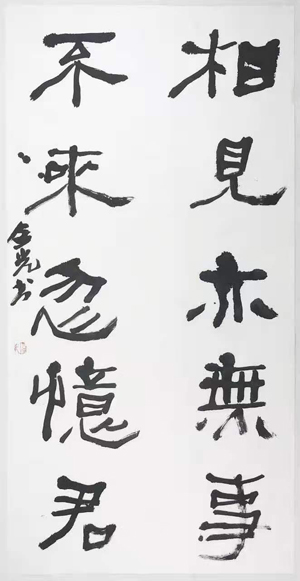 相見亦無事
不來忽憶君
光书